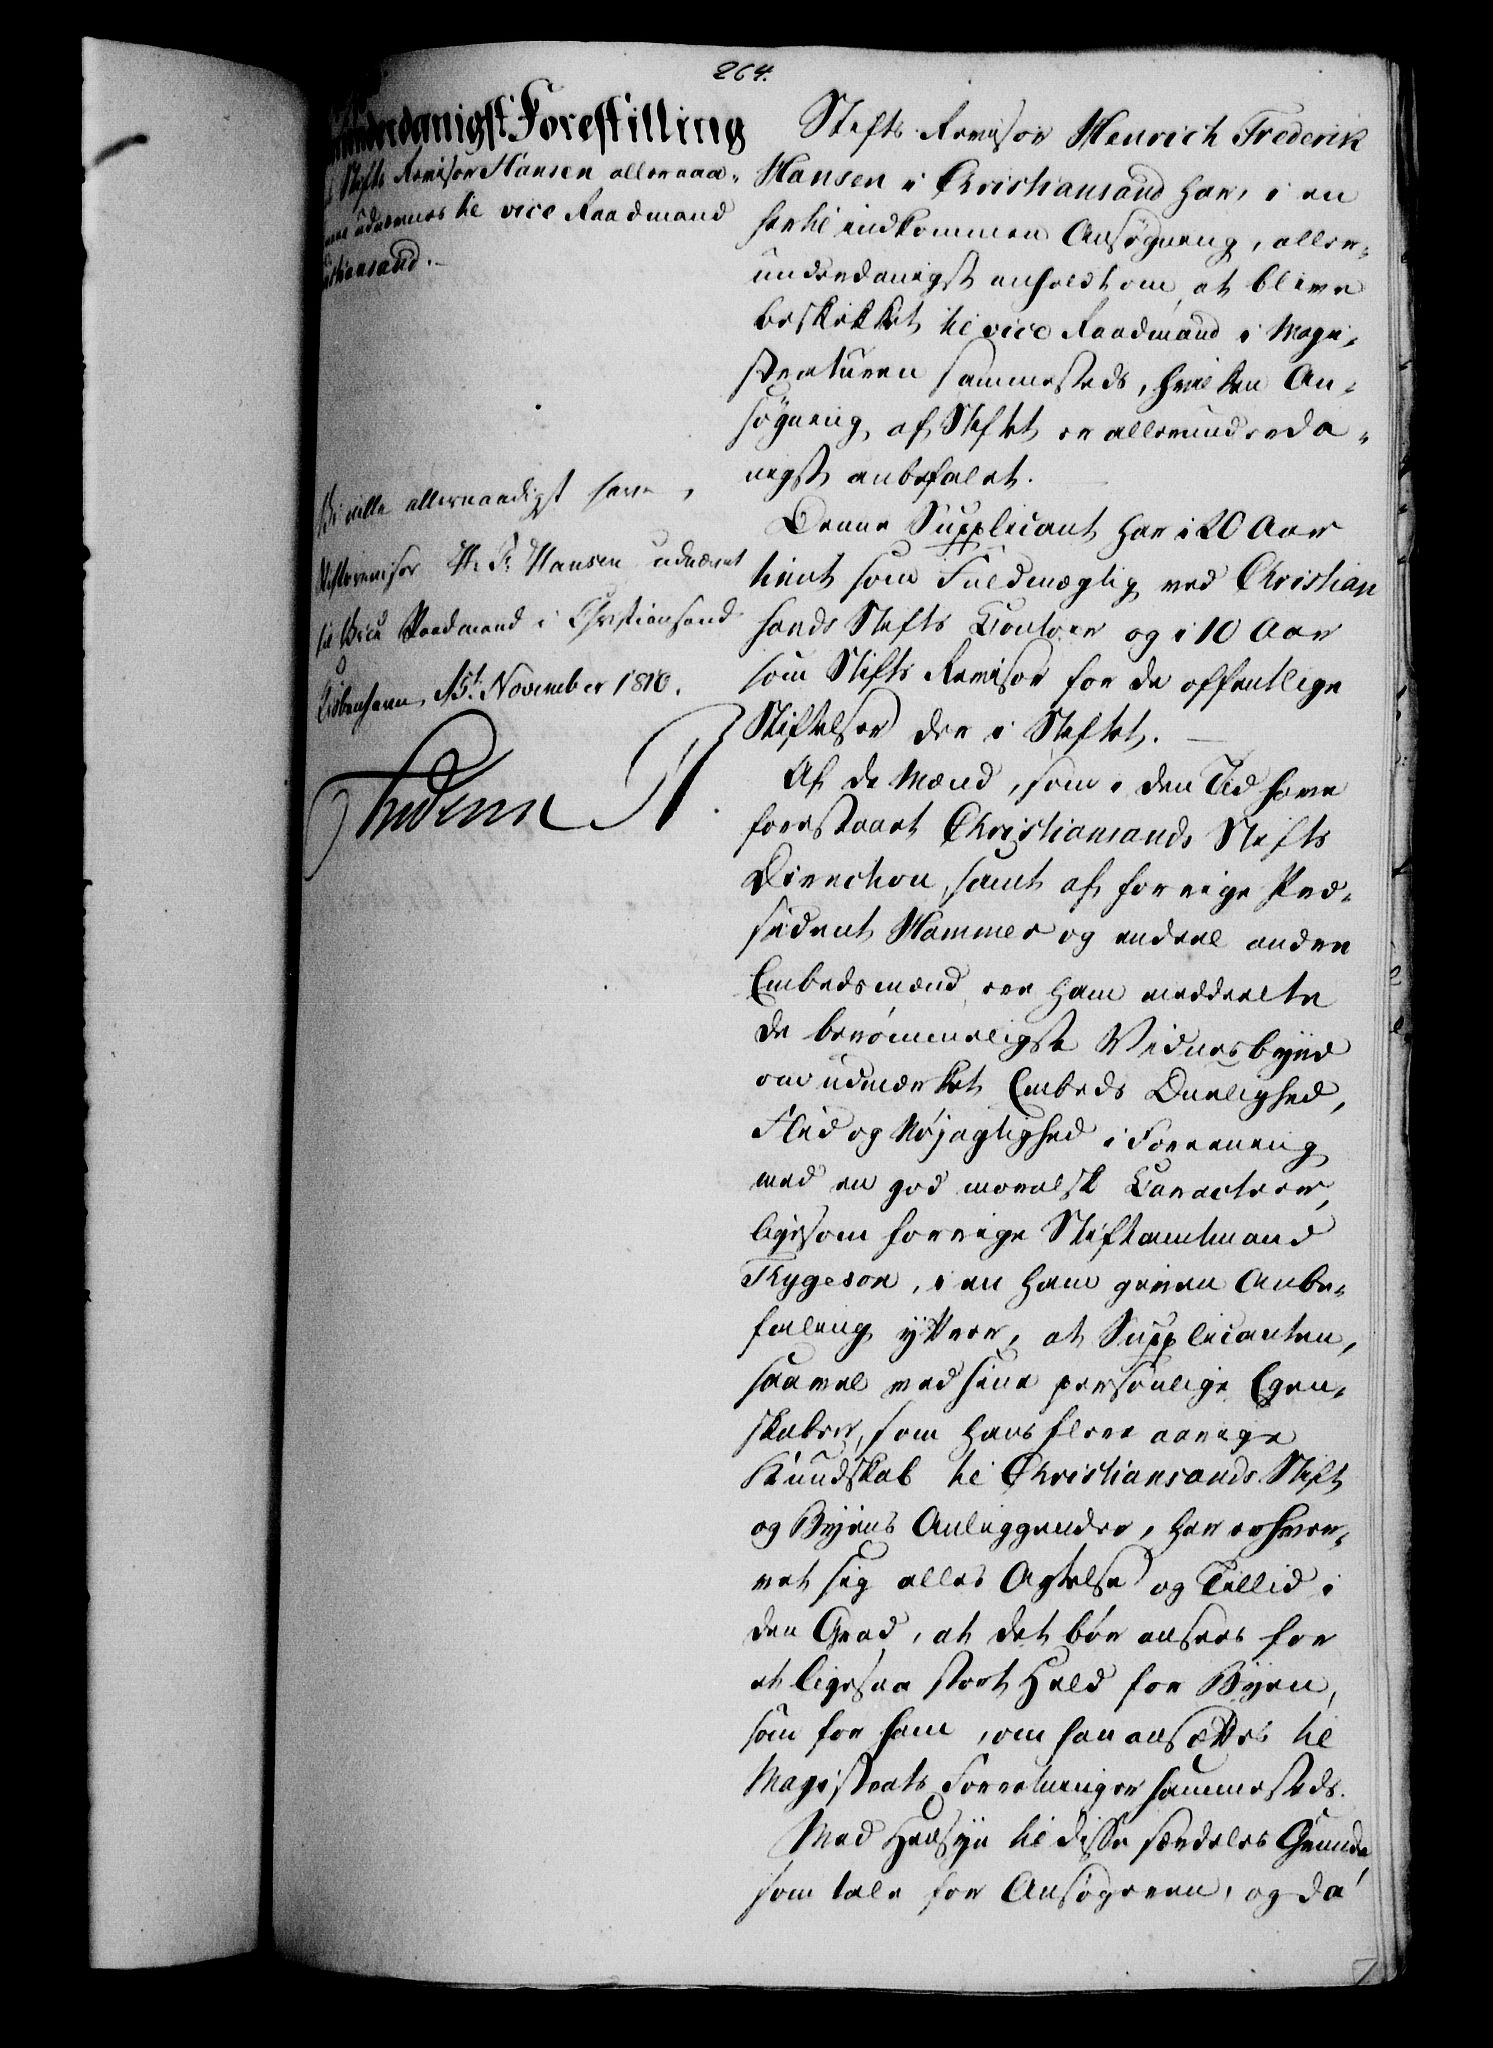 264.
allerunderdanigst Forestilling
Stifts Revisor Hansen allernaa-
udnævnes til vice Raadmand
Christiansand.
Vi ville allernaadigst have,
Stiftsrevisor H. Fr. Hansen udnævnt
til Vice Raadmand i Christiansand
Kiøbenhavn, d. 15t November 1810.
Frederik R
Stifts Revisor Henrich Frederik
Hansen i Christiansand har, i en
hertil indkommen Ansøgning, aller-
underdanigst anholdt om, at blive
beskikket til vice Raadmand i Magi-
straturen sammesteds, hvilken An-
søgning af Stiftet er allerunderda-
nigst anbefalet.
Denne Supplicant har i 20 Aar
tient som Fuldmægtig ved Christian
sands Stifts Contoir og i 10 Aar
som Stifts Revisor for de offentlige
Stiftelser der i Stiftet.
Af de Mænd, som i den Tid have
forestaaet Christiansands Stifts
Direction, samt af forrige Præ-
sident Hammer og endeel andre
Embedsmænd ere ham meddeelte
de berømmeligste Vidnesbyrd
om udmærket Embeds Duelighed,
Flid og Nøjagtighed i Forening
med en god moralsk Caracteer,
ligesom forrige Stiftamtmand
Thygeson, i en ham given Anbe-
faling yttrer, at Supplicanten,
saavel ved sine personlige Egen-
skaber, som hans fleeraarige
Kundskab til Christiansands Stift
og Byens Anliggender, har erhver-
vet sig alles Agtelse og Tillid i
den Grad, at det bør ansees for
et ligesaa stort Held for Byen,
som for ham, om han ansættes til
Magistrats Forretninger sammesteds.
Med Hensyn til disse særdeles Grunde
som tale for Ansøgeren, og da